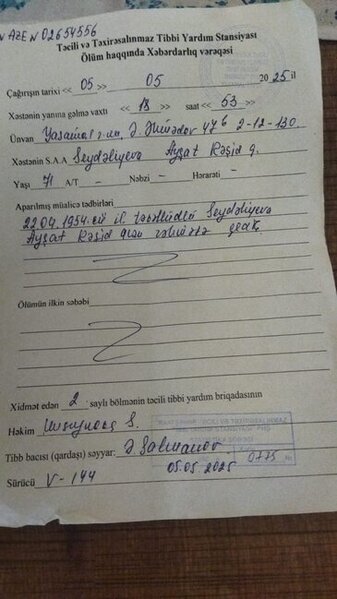 AZE N 02654556
Təcili və Təxirəsalınmaz Tibbi Yardım Stansiyası
Ölüm haqqında Xəbərdarlıq vərəqəsi
Çağırışın tarixi << 05 >> 05 2025 il
Xəstənin yanına gəlmə vaxtı << 13 >> saat << 53 >>
Ünvan Yasamal r-nu, Ə. 47б 2-12-130
Xəstənin S.A.A Seydəliyeva Ayşat Rəşid q.
Yaşı 71 A/T - Nəbzi - Hərarəti -
Aparılmış müalicə tədbirləri
22.04.1954-cü il təvəllüdlü Seydəliyeva
Ayşat Rəşid qızı
Ölümün ilkin səbəbi
Xidmət edən 2 saylı bölmənin təcili tibbi yardım briqadasının
Həkim S.
Tibb bacısı (qardaşı) səyyar: Ə Salmanov
0775
05.05.2025
Sürücü V-144